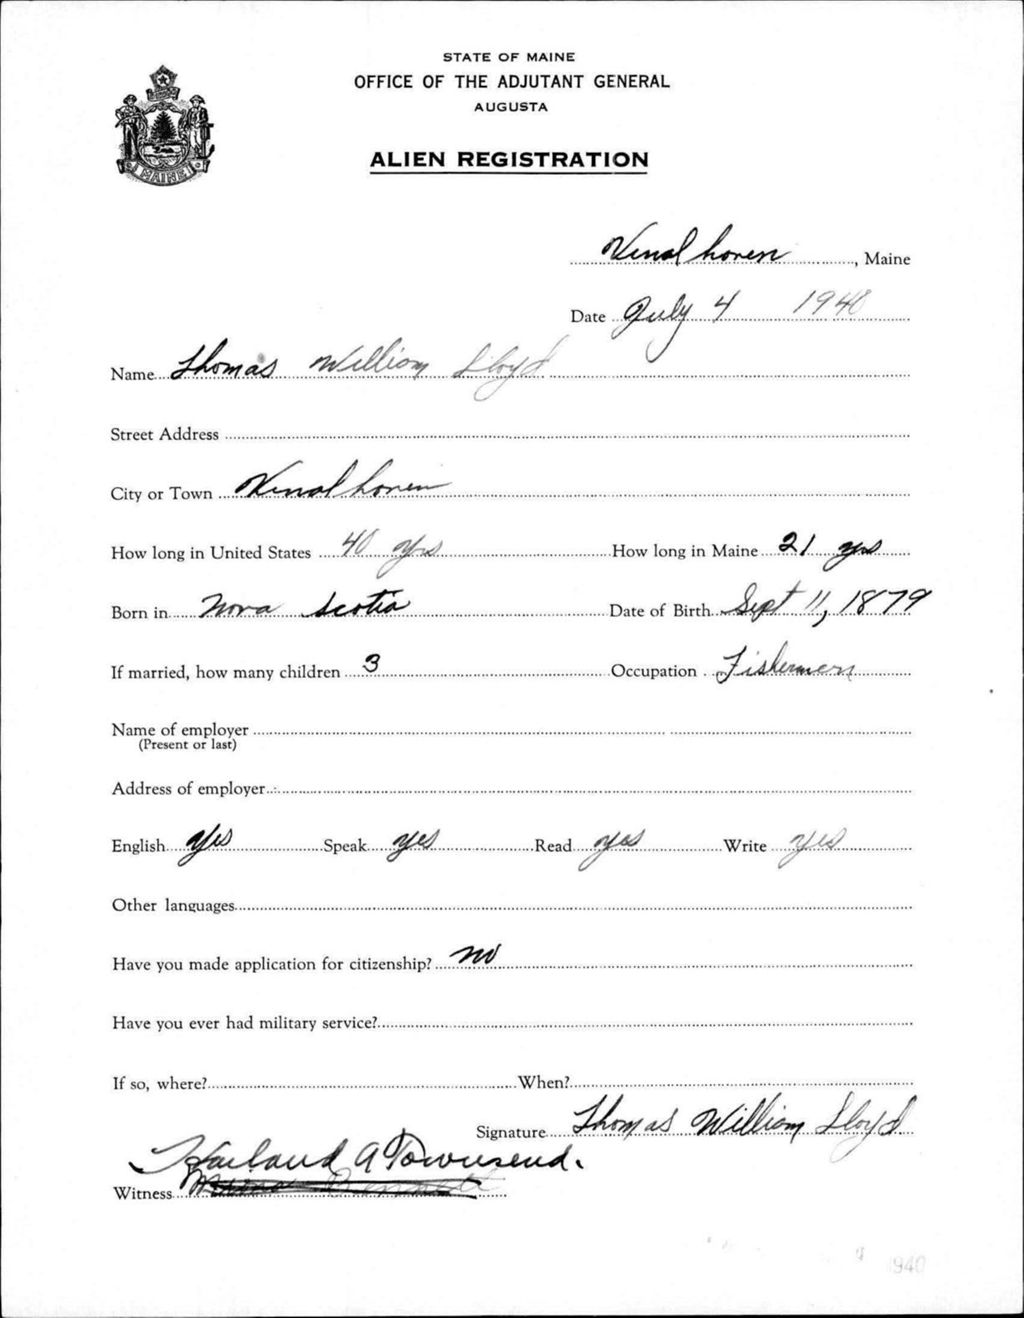 STATE OF MAINE
OFFICE OF THE ADJUTANT GENERAL
AUGUSTA
ALIEN REGISTRATION
MAINE
Vinalhaven, Maine
Date July 4 1940
Name Thomas William Lloyd
Street Address
City or Town Vinalhaven
How long in United States 40 yrs How long in Maine 21 yrs
Born in Nova Scotia Date of Birth Sept 11, 1879
If married, how many children 3 Occupation Fisherman
Name of employer
(Present or last)
Address of employer
English yes Speak yes Read yes Write yes
Other languages
Have you made application for citizenship? no
Have you ever had military service?
If so, where? When?
Signature Thomas William Lloyd
Harland A Townsend.
Witness
940